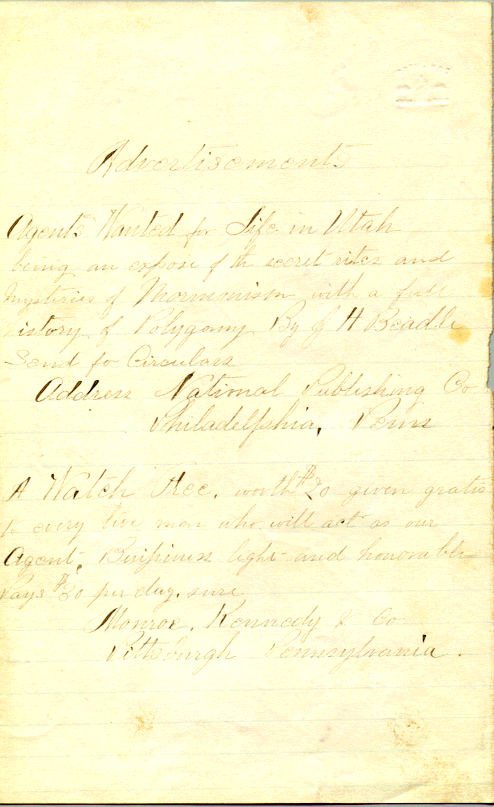 Advertisements
Agents Wanted for Life in Utah
being an expose of the secret rites and
mysteries of Mormmism with a full
istory of Polygamy By J H Beadle
Send for Circulars
Address National Publishing Co
Philadelphia, Penn
A Watch Free, worth $20 given gratis
to every live man who will act as our
Agent, Buisiness light and honorable
Pays $30 per day. sure
Monroe, Kennedy & Co
Pittsburgh Pennsylvania.